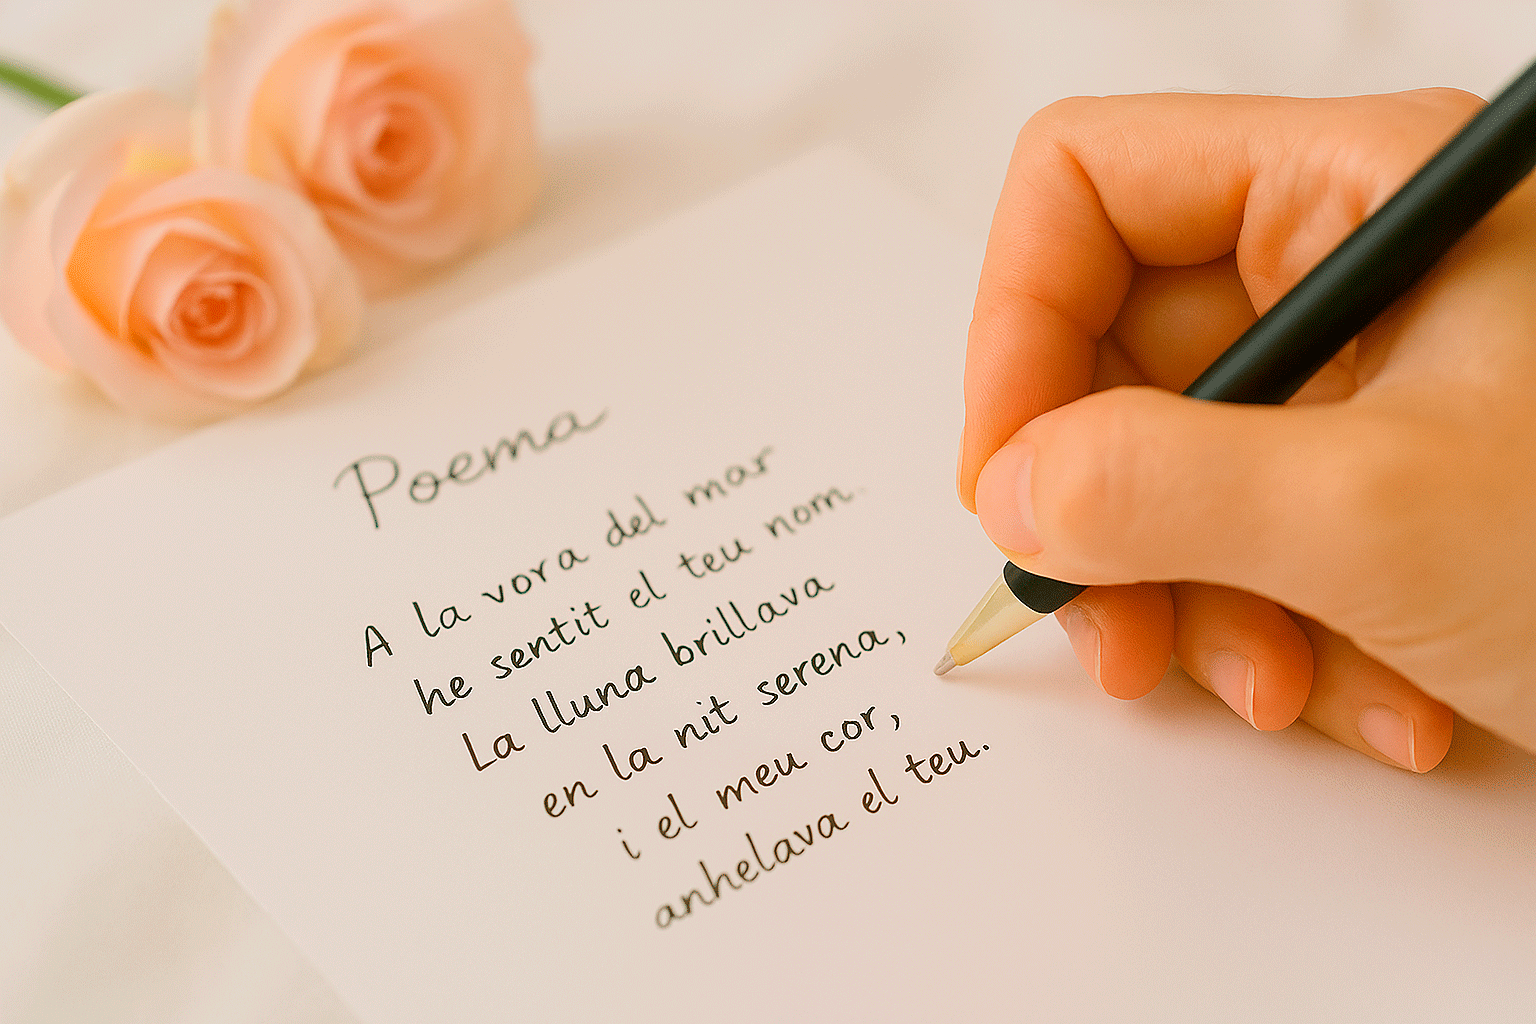 Poema
A la vora del mar
he sentit el teu nom.
La lluna brillava
en la nit serena,
i el meu cor,
anhelava el teu.